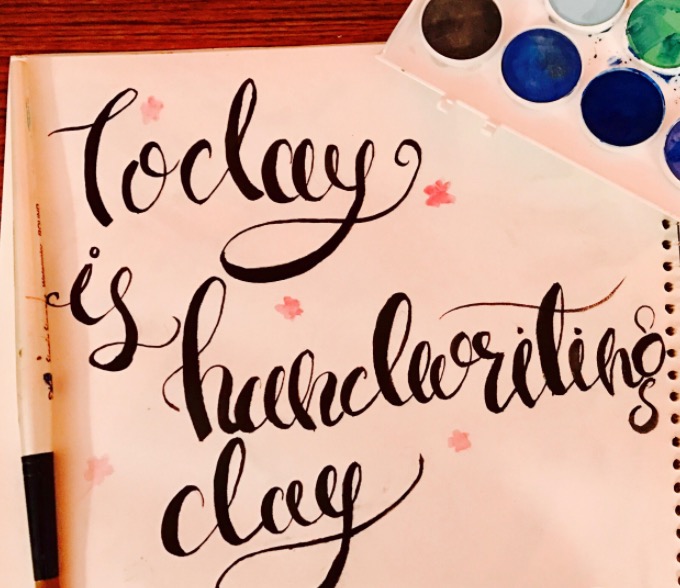 Today
is
handwriting
day